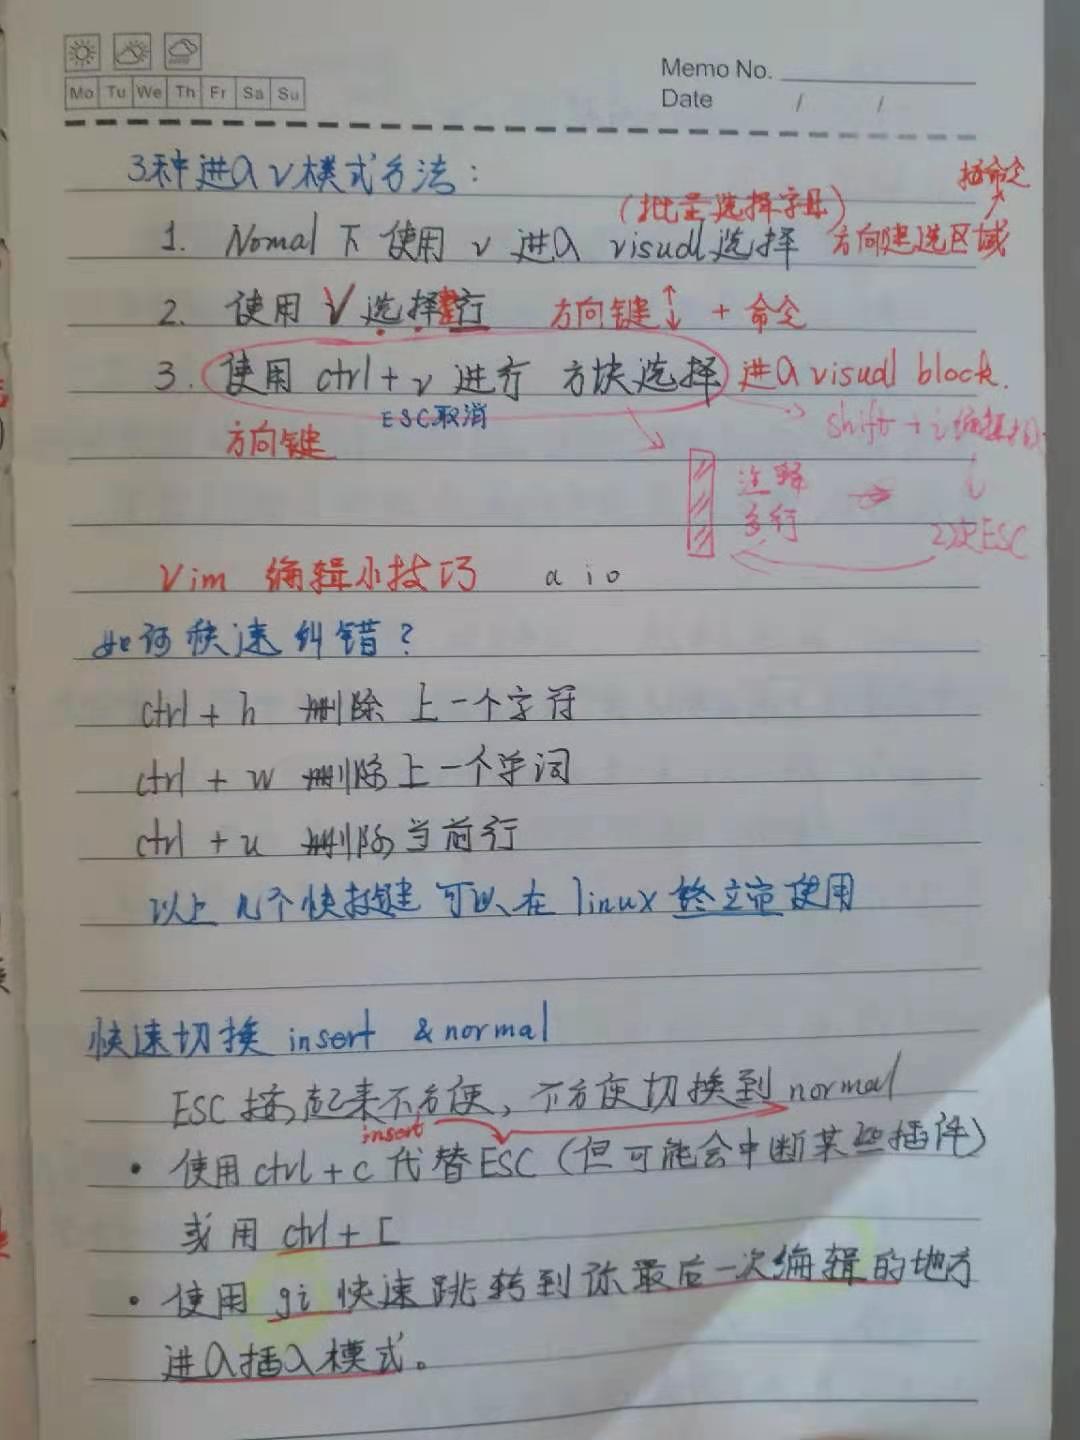 Mo Tu We Th Fr Sa Su
Memo No.
Date / /
3种进入v模式方法:
(批量选择字母)
1. Nomal 下使用 v 进入 visual选择 方向键选区域
2. 使用 V 选择整行 方向键 + 命令
3. 使用 ctrl + v 进行 方块选择 进入visual block.
ESC取消
方向键
shift + i 编辑
注释
多行
2次ESC
Vim 编辑小技巧 a i o
如何快速纠错?
ctrl + h 删除上一个字符
ctrl + w 删除上一个单词
ctrl + u 删除当前行
以上几个快捷键 可以在 linux 终端使用
快速切换 insert & normal
ESC按起来不方便, 不方便切换到 normal
insert
• 使用 ctrl + c 代替ESC (但可能会中断某些插件)
或用 ctrl + [
• 使用 gi 快速跳转到你最后一次编辑的地方
进入插入模式。